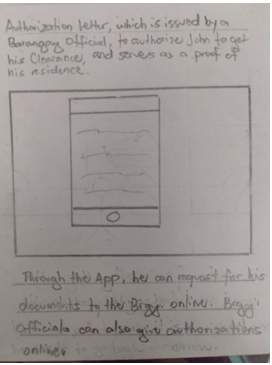 Authorization letter, which is issued by a
Barangay Official, to authorize John to get
his Clearance, and serves as a proof of
his residence.
Through the App, he can request for his
documents to the Brgy. online. Brgy.
Officials can also give authorizations
online.